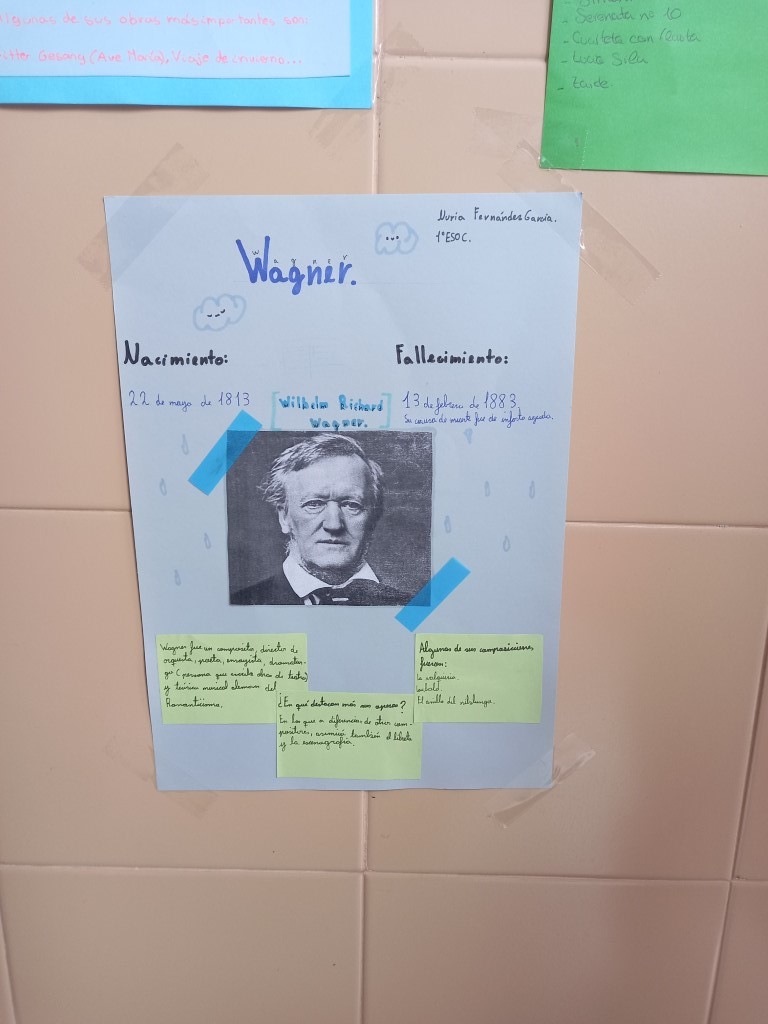 Algunas de sus obras más importantes son:
itter Gesang (Ave María), Viaje de invierno...
- Serenata nº 10
- Cuarteto con flauta
- Lucio Sila
- Zaide
Nuria Fernándes García.
1ºESO C.
wagner
Wagner.
Nacimiento:
Fallecimiento:
22 de mayo de 1813
[Wilhelm Richard
Wagner.]
13 de febrero de 1883
Su causa de muerte fue de infarto agudo.
Wagner fue un composito, director de
orquesta, poeta, ensayista, dramatur-
go (persona que escribe obras de teatro)
y teórico musical alemán del
Romanticismo.
¿En qué destacan más sus operas?
En las que a diferencia de otros com-
positores, asumió también el libreto
y la escenografía.
Algunas de sus composiciones
fueron:
La valquiria.
El anillo del nibelungo.